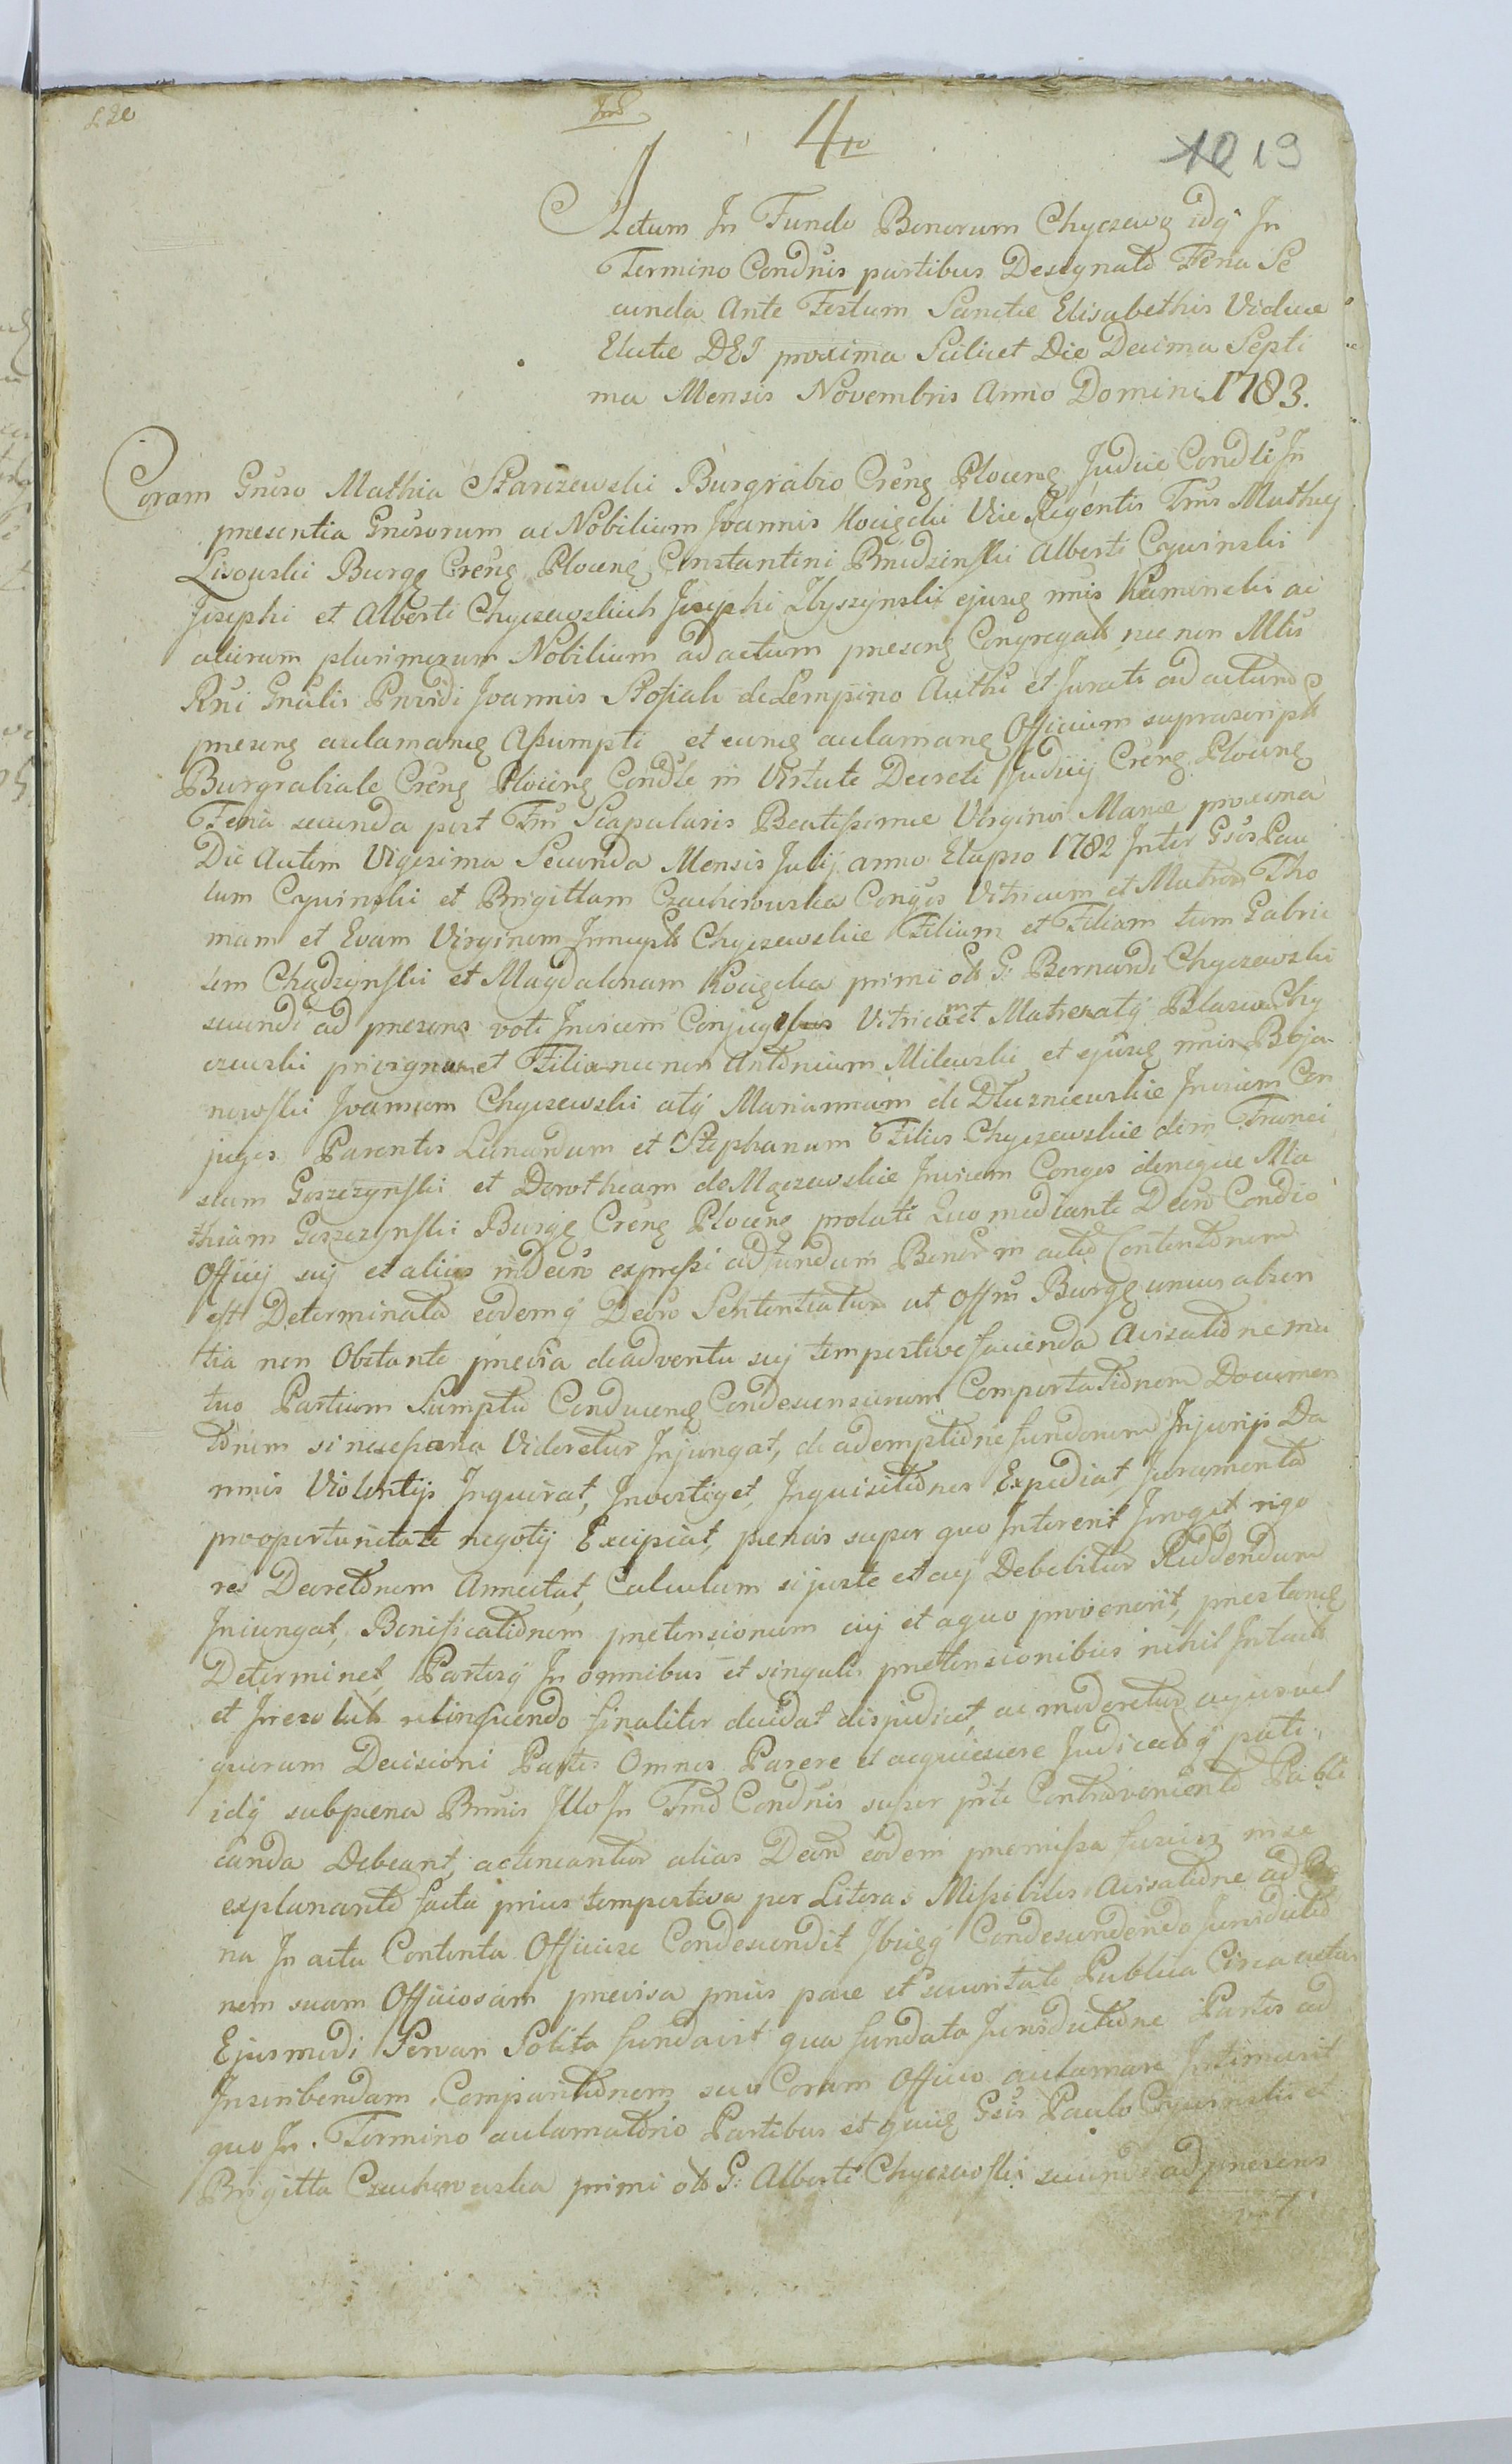 4to
10 19
Actum In Fundo Bonorum Chyczewo idq In
Termino Condnis partibus Designato Feria Se
cunda Ante Festum Sanctae Elisabethis Viduae
Electae DEI proxima Scilicet Die Decima Septi
ma Mensis Novembris Anno Domini 1783.
Coram Gnoso Mathia Starczewski Burgrabio Crēng Ploceng Judice Condli In
presentia Gnosorum ac Nobilium Joannis Kocięcki Vice Regentis Tmis Mathey
Lisowski Burgę Crēng Ploceng Constantini Brudzinski Alberti Cywinski
Josephi et Alberti Chyczewskich Josephi Zbyszynski ejusq nnis Kaminski ac
aliorum plurimorum Nobilium ad actum preseng Congregat nec non Mlis
Rni Gnalis Pnvidi Joannis Stosiak de Lempino Authi et Jurati ad actund
preseng aclamang Assumpti et eung aclamang Officium suprascript
Burgrabiale Crēng Ploceng Condle in Virtute Decreti Judicij Crēng Ploceng
Feria secunda post Fm Scapularis Beatissimae Virginis Mariae proxima
Die Autem Vigesima Secunda Mensis Julij anno Elapso 1782 Inter Gsos Pau
lum Cywinski et Brigittam Czachorowska Conges Vitricum et Matrem Tho
mam et Evam Virginem Innupt Chyczewskie Filium et Filiam tum Gabrie
lem Chądzynski et Magdalenam Kocięcka primi ott G: Bernardi Chyczewski
secundi ad presens voti Invicem Conjuges Vitricum et Matrem atq Blasium Chy
czewski privignum et Filium necnon Antonium Milewski et ejusq nnis Boja
nowski Joannem Chyczewski atq Mariannam de Dłuzniewskie Invicem Con
juges Parentes Leonardum et Stephanum Filios Chyczewskie dein Franci
scum Goszczynski et Dorotheam de Mączewskie Invicem Conges denique Ma
thiam Goszczynski Burgę Crēng Ploceng prolati Quo mediante Decro Condio
Officij sui et alius in Decro expressi ad fundum Bonor in actis Contentorum
est Determinata eodemq Decro Sententiatum ut Offm Burgę unius absen
tia non Obstante previa de adventu sui tempestive facienda Avisatione mu
tuo Partium Sumptu Conduceng Condescensionem Comportationem Documen
torum si necessaria Videretur Injungat, de ademptione fundorum Injurijs Da
mnis Violentijs Inquirat, Investiget, Inquisitiones Expediat, Juramenta
pro oportunitate negotij Excipiat, paenas super quo Intererit Irroget rigo
res Decretorum Annectat, Calculum si juste et cuj Debebitur Reddendum
Iniungat, Bonificationem pretensionum cuj et a quo provenerit, prestang
Determinet, Partesq In omnibus et singulis pretensionibus nihil Intact
et Irresolut relinquendo finaliter decidat disjudicet, ac moderetur cujus vel
quorum Decisioni Partes Omnes Parere et acquiescere Judicatq pati,
idq sub paena Bnnis Illo In Tmo Condnis super pte Contraveniente Publi
canda Debeant, ac teneantur alias Decro eodem premissa fusius in se
explanante facta prius tempestiva per Literas Missibiles Avisatione ad Bo
na In actu Contenta Officiose Condescendit Ibiq Condescendendo Jurisdictio
nem suam Officiosam previsa prius pace et securitate Publica Circa actus
Ejusmodi Servari Solita fundavit qua fundata Jurisdictione Partes ad
Inscribendam Comparitionem suo Coram Officio aclamare Intimavit
quo In Termino aclamationis Partibus et quidę Gsis Paulo Cywinski et
Brigitta Czachorowska primi ott G: Alberti Chyczewski secundi ad presens
voti